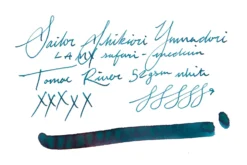 Sailor Shikiori Yamadori
LAMY safari - medium
Tomoe River 52gsm white
XXXXX